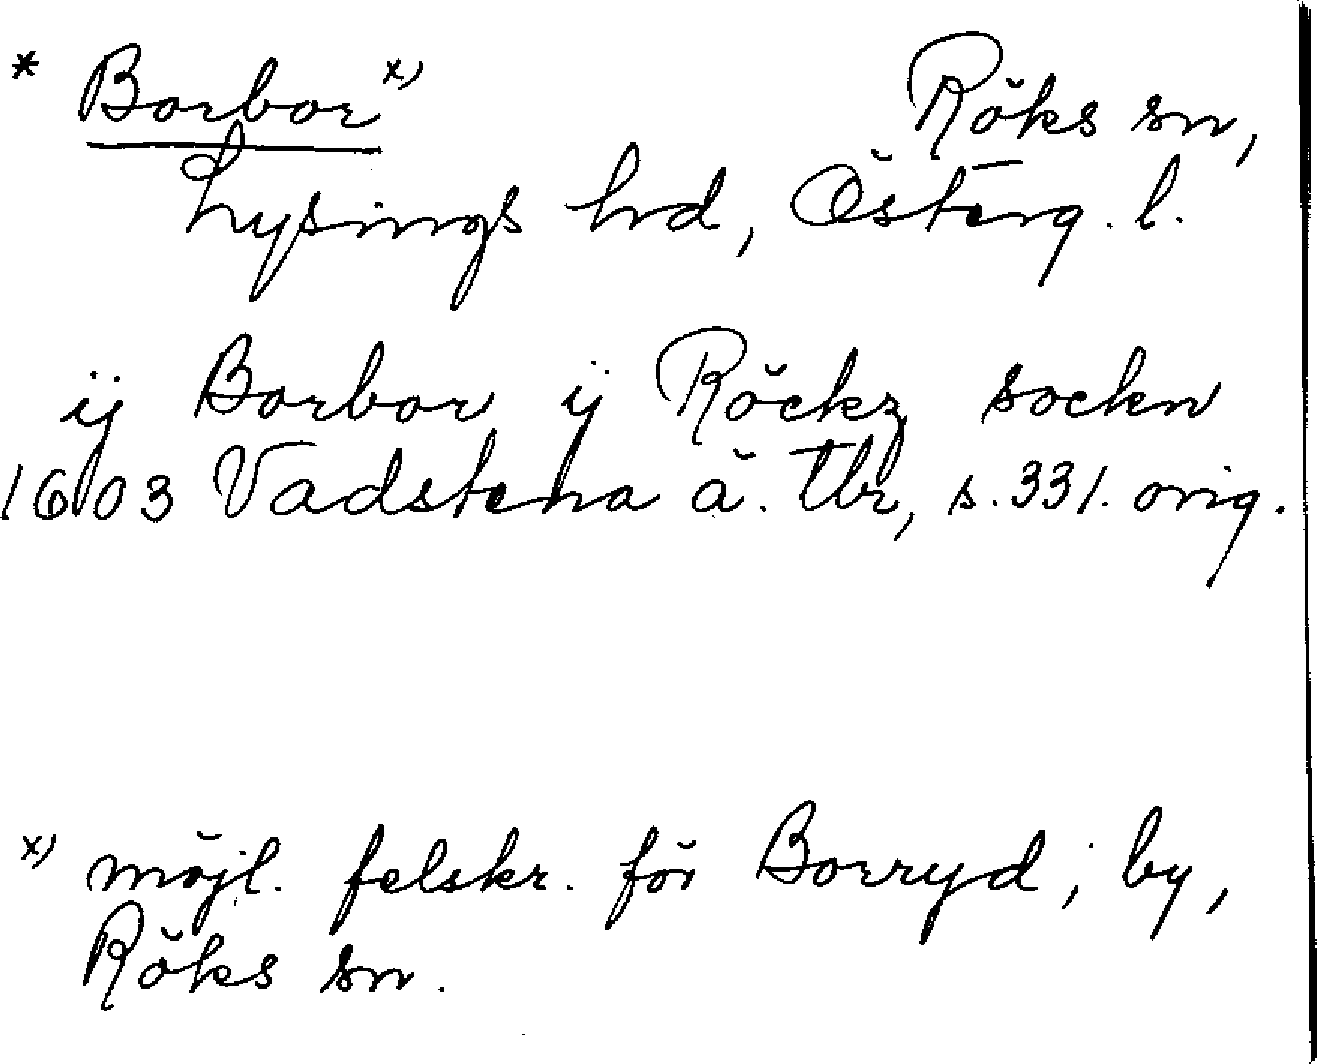 * Borbor x) Röks sn,
Lysings hd, Österg. l.
ÿ Borbor ÿ Röckz sockn
1603 Vadstena ä. tbr, s. 331. orig.
x) möjl. felskr. för Borryd, by,
Röks sn.